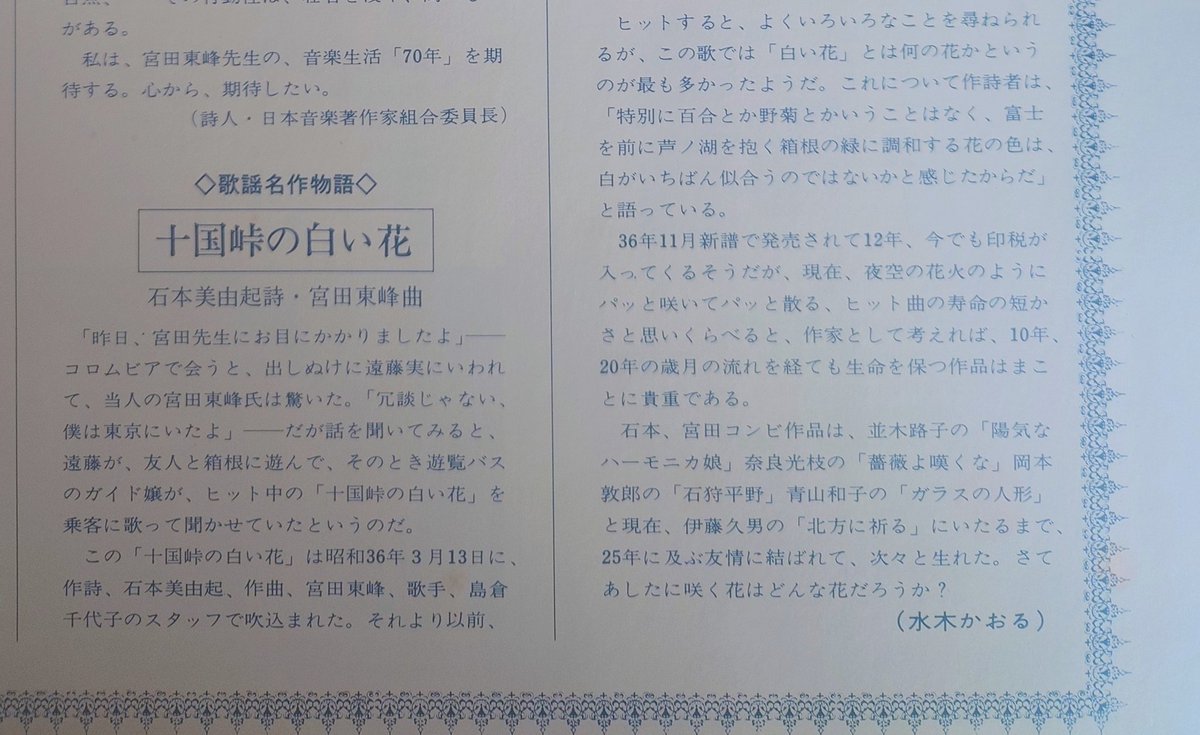 がある。
私は、宮田東峰先生の、音楽生活「70年」を期
待する。心から、期待したい。
（詩人・日本音楽著作家組合委員長）
◇歌謡名作物語◇
十国峠の白い花
石本美由起詩・宮田東峰曲
「昨日、宮田先生にお目にかかりましたよ」――
コロムビアで会うと、出しぬけに遠藤実にいわれ
て、当人の宮田東峰氏は驚いた。「冗談じゃない、
僕は東京にいたよ」――だが話を聞いてみると、
遠藤が、友人と箱根に遊んで、そのとき遊覧バス
のガイド嬢が、ヒット中の「十国峠の白い花」を
乗客に歌って聞かせていたというのだ。
この「十国峠の白い花」は昭和36年3月13日に、
作詩、石本美由起、作曲、宮田東峰、歌手、島倉
千代子のスタッフで吹込まれた。それより以前、
ヒットすると、よくいろいろなことを尋ねられ
るが、この歌では「白い花」とは何の花かという
のが最も多かったようだ。これについて作詩者は、
「特別に百合とか野菊とかいうことはなく、富士
を前に芦ノ湖を抱く箱根の緑に調和する花の色は、
白がいちばん似合うのではないかと感じたからだ」
と語っている。
36年11月新譜で発売されて12年、今でも印税が
入ってくるそうだが、現在、夜空の花火のように
パッと咲いてパッと散る、ヒット曲の寿命の短か
さと思いくらべると、作家として考えれば、10年、
20年の歳月の流れを経ても生命を保つ作品はまこ
とに貴重である。
石本、宮田コンビ作品は、並木路子の「陽気な
ハーモニカ娘」奈良光枝の「薔薇よ嘆くな」岡本
敦郎の「石狩平野」青山和子の「ガラスの人形」
と現在、伊藤久男の「北方に祈る」にいたるまで、
25年に及ぶ友情に結ばれて、次々と生れた。さて
あしたに咲く花はどんな花だろうか？
（水木かおる）